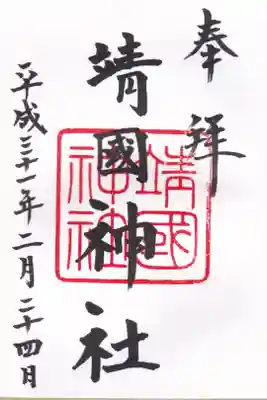 奉拝
靖國神社
靖國神社
平成三十一年二月二十四日